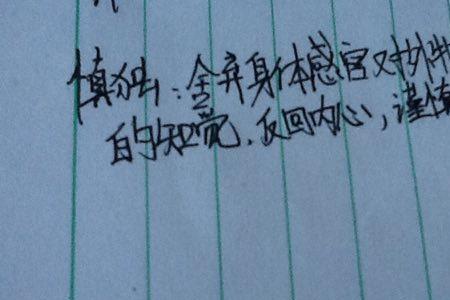 慎独：舍弃身体感官对外物
的知觉，反回内心，谨慎